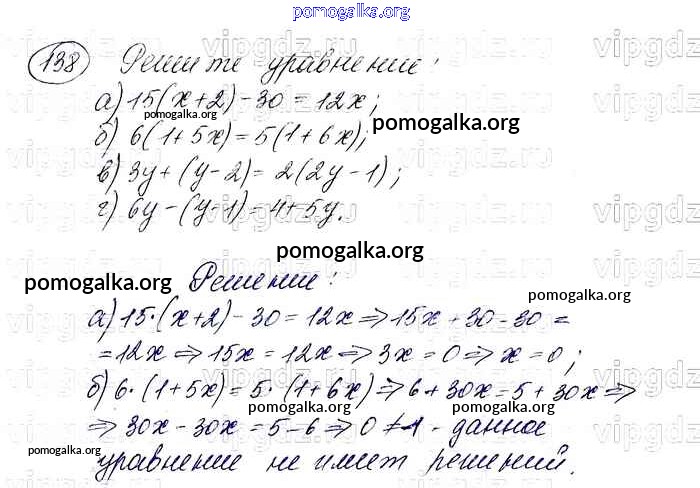 pomogalka.org
138 Решите уравнение:
а) 15(x+2)-30=12x;
pomogalka.org
б) 6(1+5x)=5(1+6x);
pomogalka.org
в) 3y+(y-2)=2(2y-1);
г) 6y-(y-1)=4+5y.
pomogalka.org
Решение:
pomogalka.org
pomogalka.org
а) 15·(x+2)-30=12x⇒15x+30-30=
=12x⇒15x=12x⇒3x=0⇒x=0;
б) 6·(1+5x)=5·(1+6x)⇒6+30x=5+30x⇒
pomogalka.org
pomogalka.org
⇒30x-30x=5-6⇒0≠-1 - данное
pomogalka.org
уравнение не имеет решений.